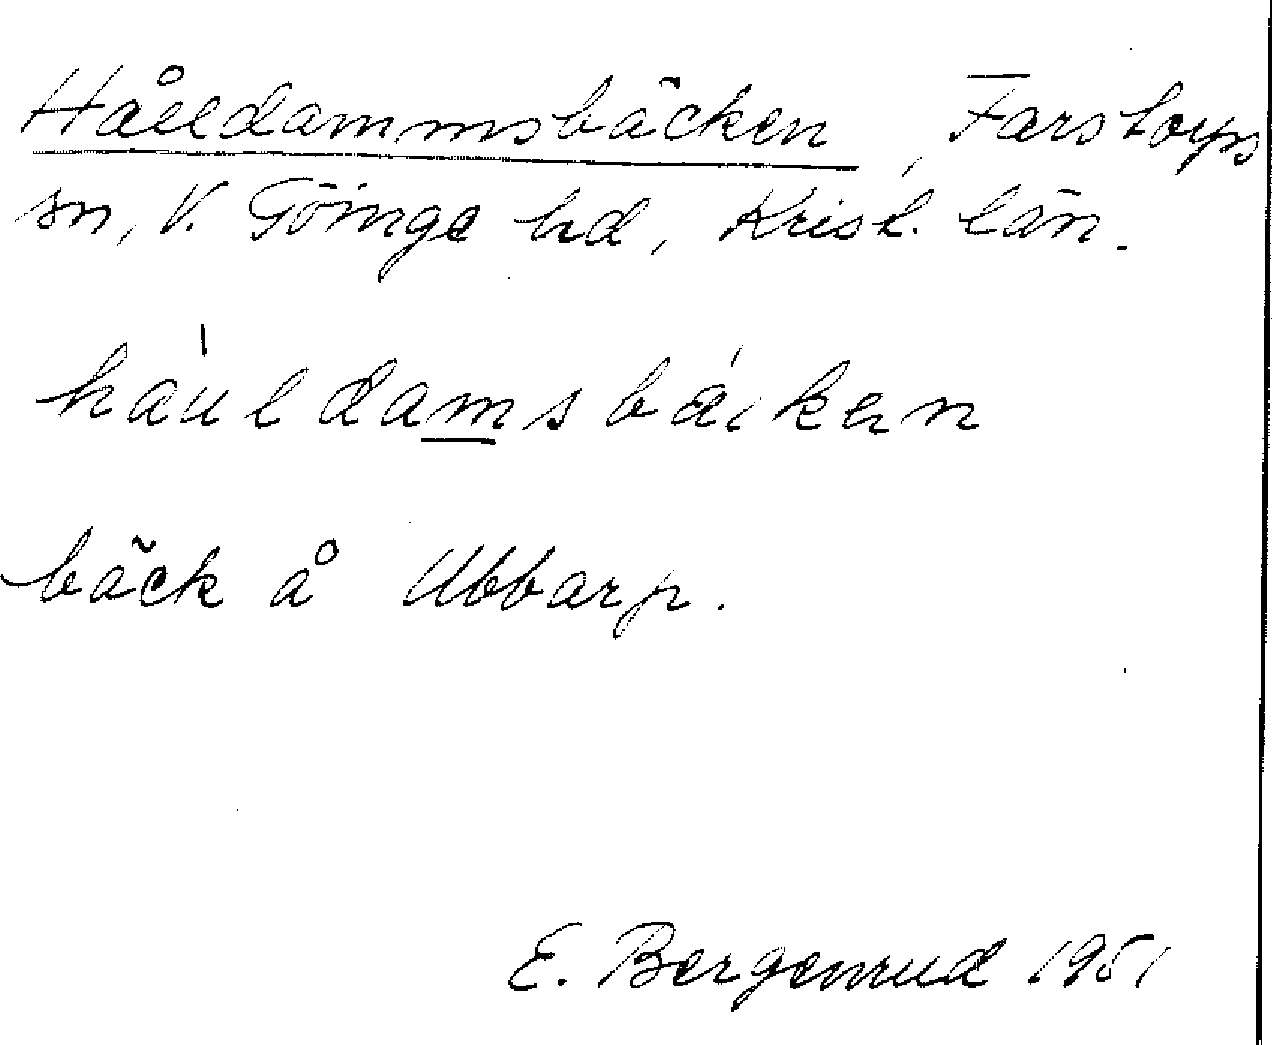 Hålldammsbäcken, Farstorps
sn, V. Göinge hd, Krist. län.
hàuldamsbá,kęn
bäck å Ubbarp.
E. Bergenrud 1951